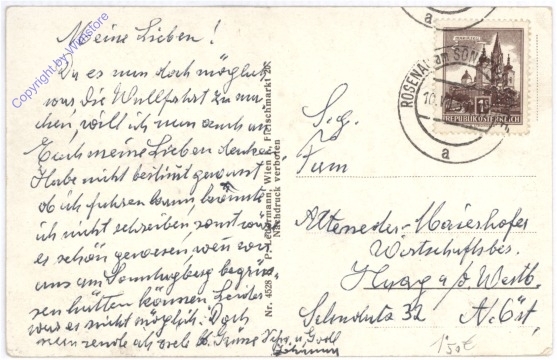 Meine Lieben!
Da es nun doch möglich
war die Wallfahrt zu ma-
chen, will ich nun auch an
Euch meine Lieben denken.
Habe nicht bestimt gewusst
ob ich fahren kann, konnte
ich nicht schreiben, sonst wäre
es schön gewesen, wen wir
uns am Sonntagberg begrüs-
sen hätten können. Leider
war es nicht möglich. Doch
nun sende ich viele lb. Grüsse
Copyright by Wienstore
Nr. 4528 P. Ledermann, Wien I, Fleischmarkt 20.
Nachdruck verboten
ROSENAU am SONN
10.
a
REPUBLIK ÖSTERREICH
S.g.
Fam
Alteneder-Maierhofer
Wirtschaftsbes.
Haag a/d Westb.
Salaberg 32 N.Öst.
1'50€